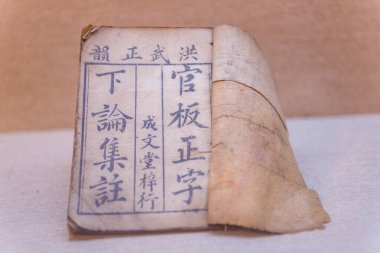 洪武正韻
官板正字
成文堂梓行
下論集註